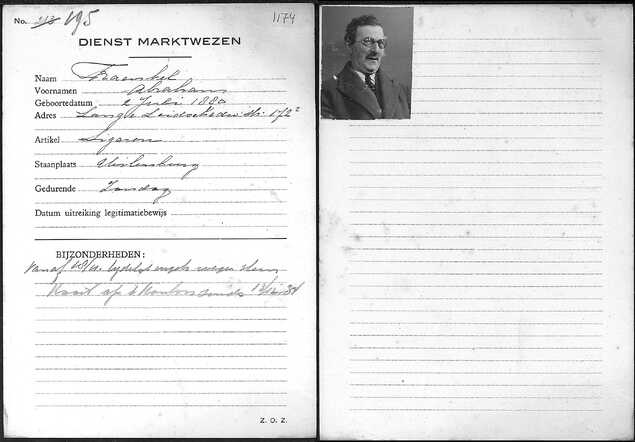 No. 213 195
1174
DIENST MARKTWEZEN
Naam Fraenkel
Voornamen Abraham
Geboortedatum 2 Juli 1880
Adres Lange Leidschedw. str. 172²
Artikel Sigaren
Staanplaats Uilenburg
Gedurende Zondag
Datum uitreiking legitimatiebewijs
BIJZONDERHEDEN:
Vanaf
Kaart op 't Kantoor sinds
Z. O. Z.